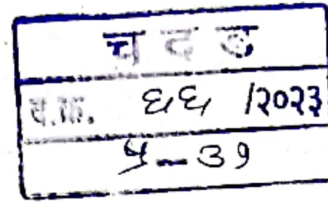 च द ड
द.क्र. ६६ /२०२३
५-३१